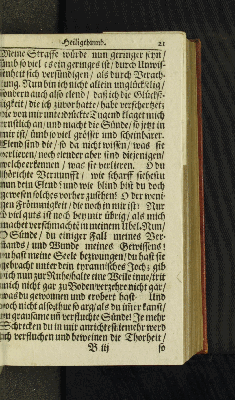 Heiligthumb. 21
Meine Straffe würde nun geringer seyn/
umb so viel es ein geringes ist/ durch Unwis-
senheit sich versündigen/ als durch Verach-
tung. Nun bin ich nicht allein unglückselig/
sondern auch also elend/ daß ich die Glücks-
igkeit/ die ich zuvor hatte/ habe verschertzet;
die von mir unterdrückte Tugend klaget mich
ernstlich an/ und macht die Sünde/ so jetzt in
mir ist/ umb so viel grösser und scheinbarer.
Elend sind die/ so da nicht wissen/ was sie
verlieren/ noch elender aber sind diejenigen/
welche erkennen/ was sie verlieren. O du
thörichte Vernunfft/ wie scharff siehestu
nun dein Elend! und wie blind bist du doch
gewesen solches vorher zusehen! O der weni-
gen Frömmigkeit/ die noch in mir ist! Nur
so viel guts ist noch bey mir übrig/ als mich
machet verschmacht in meinem Übel. Nun/
O Sünde/ du einiger Fall meines Ver-
stands/ und Wunde meines Gewissens!
du hast meine Seele bezwungen/ du hast sie
gebracht unter dein tyrannisches Joch; gib
mich nun zur Ruhe/ halte eine Weile inne/ trit
mich nicht gar zu Boden/ verzehre nicht gar/
was du gewonnen und erobert hast. Und
doch nicht also/ thue so arg/ als du immer kanst/
du grausame und verfluchte Sünde! Je mehr
Schrecken du in mir anrichtest/ je mehr werd
ich verfluchen und beweinen die Thorheit/
B iij so